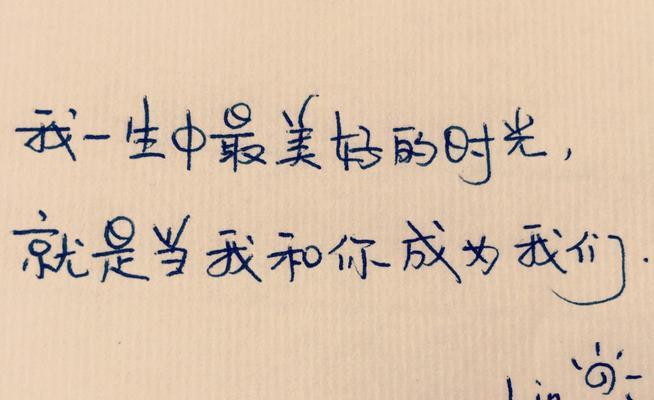 我一生中最美好的时光，
就是当我和你成为我们.
Lin